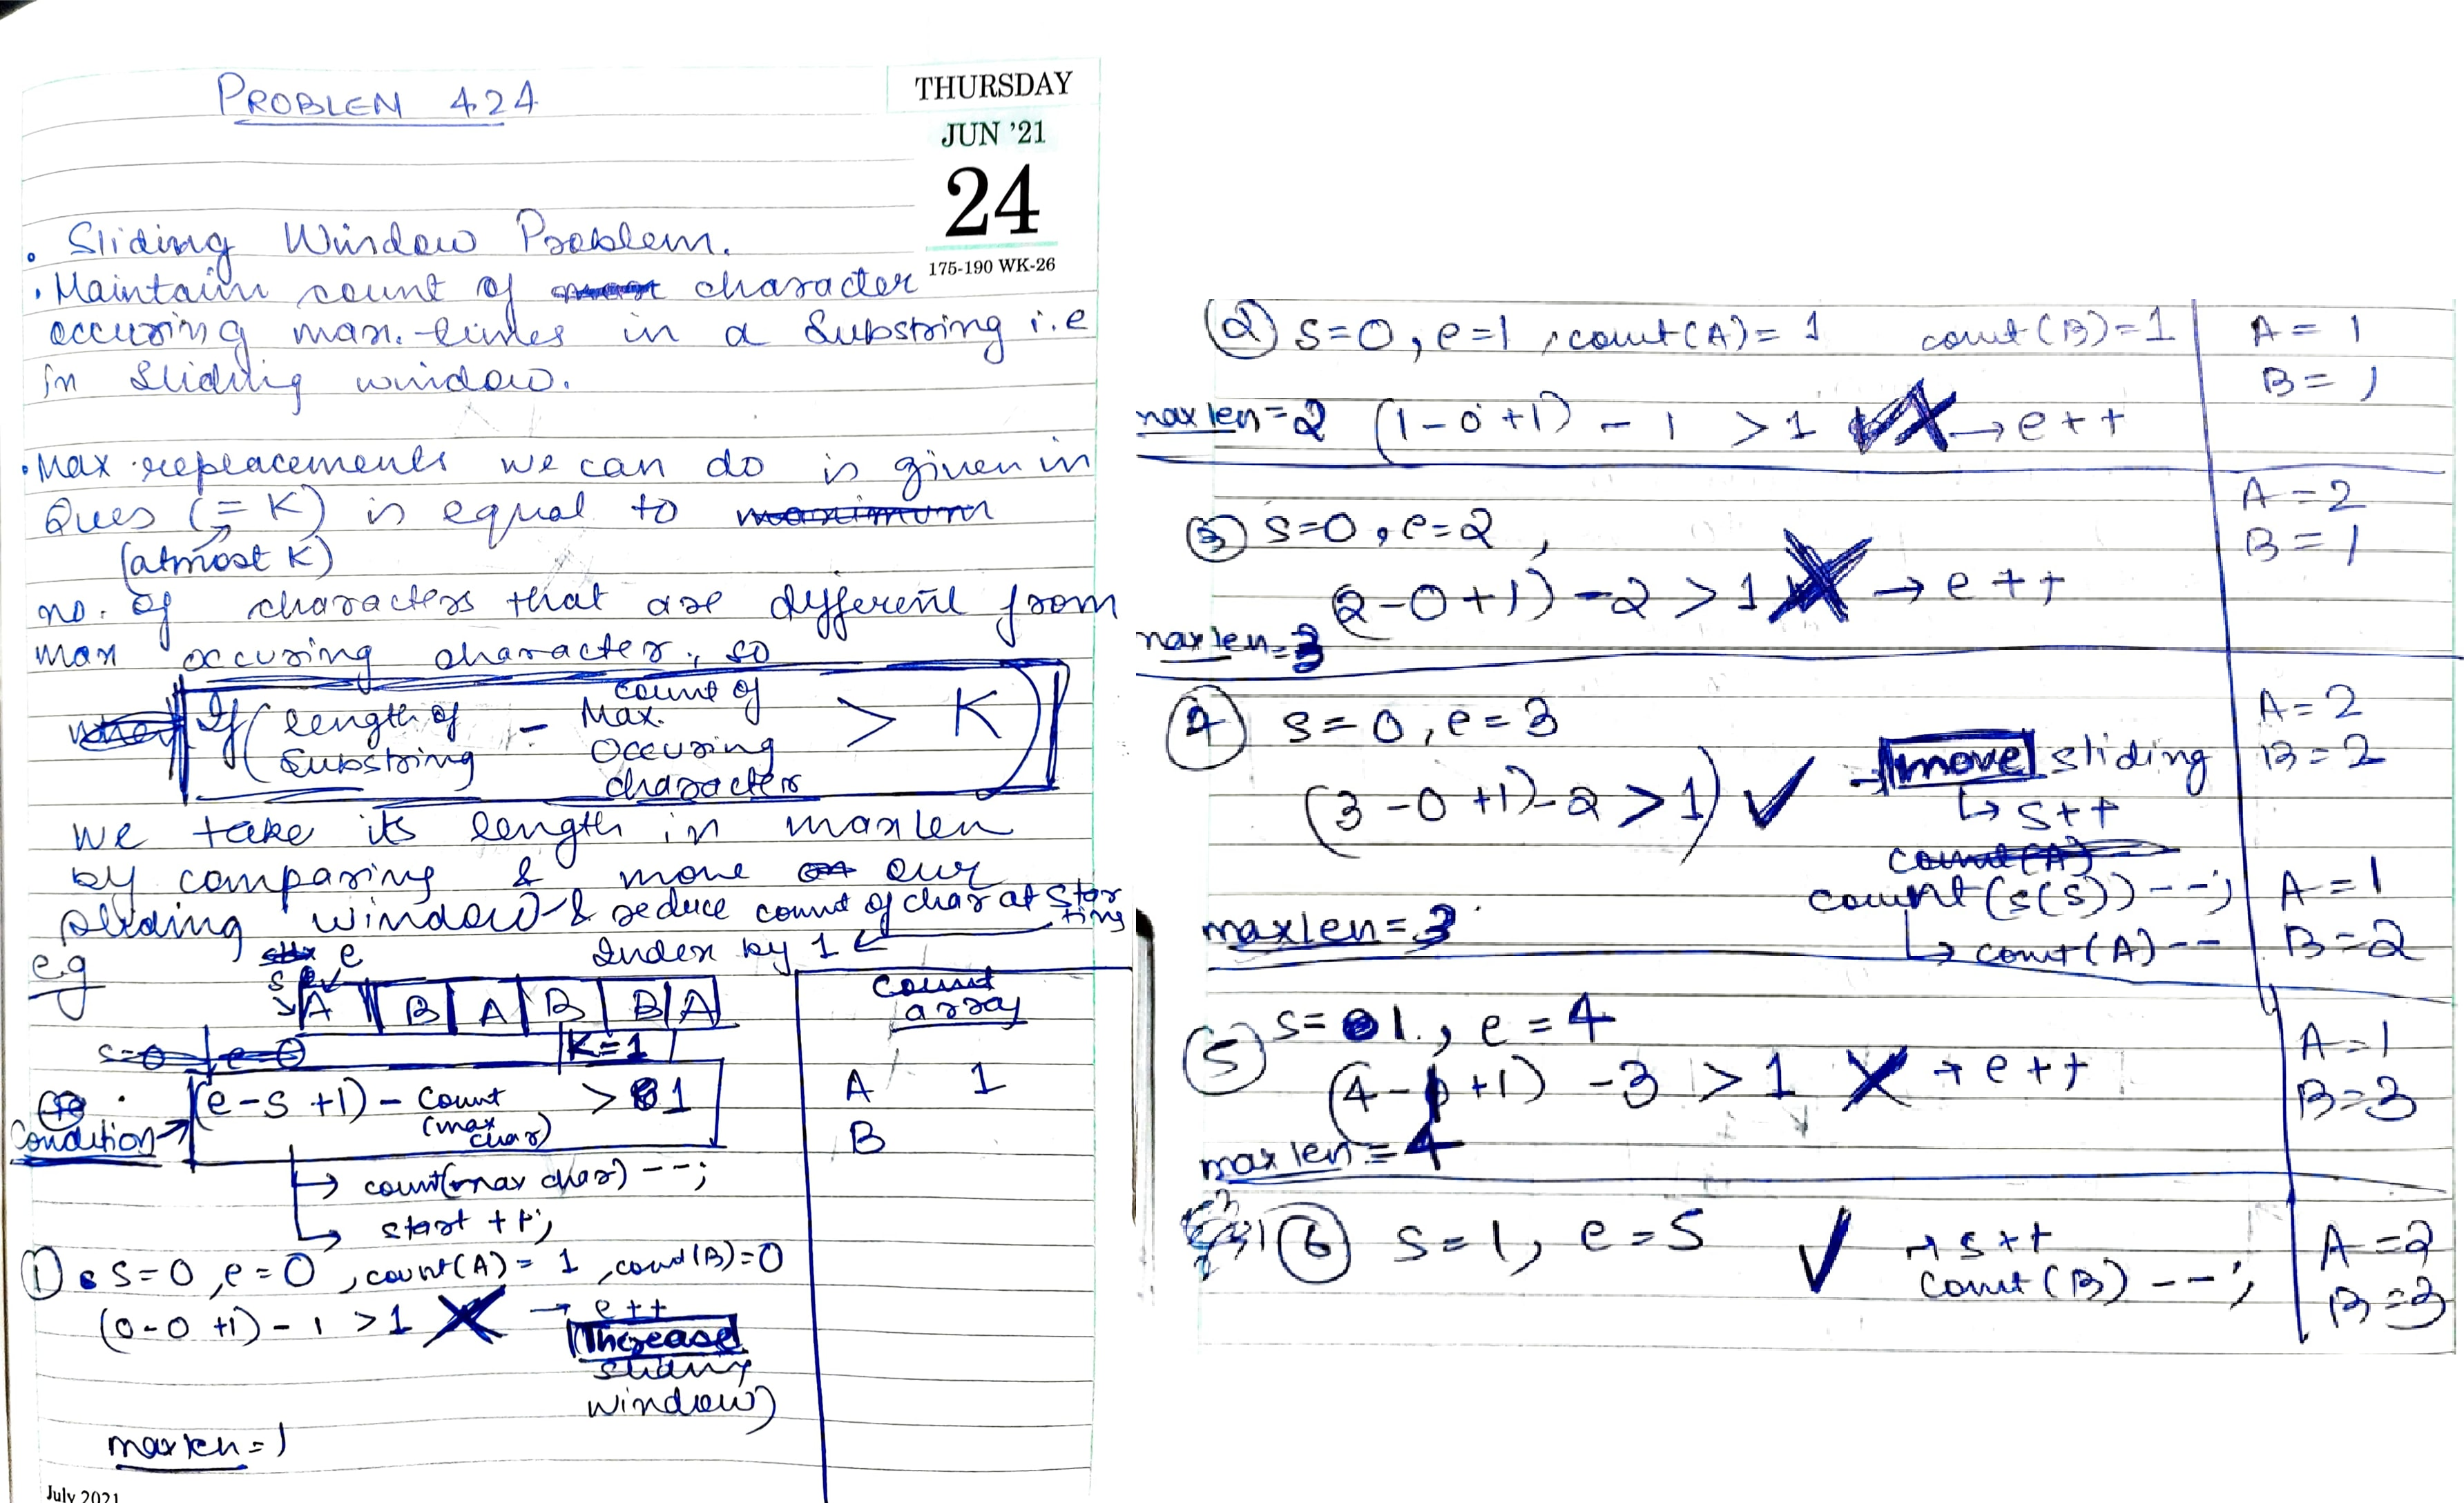 PROBLEM 424
THURSDAY
JUN '21
24
175-190 WK-26
• Sliding Window Problem.
• Maintain count of character
occuring max. times in a Substring i.e
in Sliding window.
• Max replacements we can do is given in
Ques (= K) is equal to maximum
(atmost K)
no. of characters that are different from
max occuring character, so
If (length of Substring - count of Max. Occuring characters > K)
we take its length in maxlen
by comparing & move our
sliding window & reduce count of char at starting
Index by 1
eg
e
s
A B A B B A
K=1
s=0 e=0
count array
A 1
B
Condition → (e-s+1) - count (max char) > 1
↳ count(max char) --;
↳ start ++;
① s=0, e=0, count(A)= 1, count(B)=0
(0-0+1) - 1 > 1 X → e++
(Increase
sliding
window)
maxlen = 1
July 2021
② s=0, e=1, count(A)= 1 count(B)=1
A = 1
B = 1
maxlen=2 (1-0+1) - 1 > 1 X → e++
③ s=0, e=2,
A = 2
B = 1
(2-0+1) -2 > 1 X → e++
maxlen=3
④ s=0, e=3
A=2
B=2
(3-0+1)-2 > 1) ✓ → move sliding
↳ s++
count(A)
count(s(s))--;
↳ count(A)--
A=1
B=2
maxlen=3
⑤ s=1, e=4
A=1
B=3
(4-1+1) -3 > 1 X → e++
maxlen=4
⑥ s=1, e=5 ✓ → s++
count(B)--;
A=2
B=3